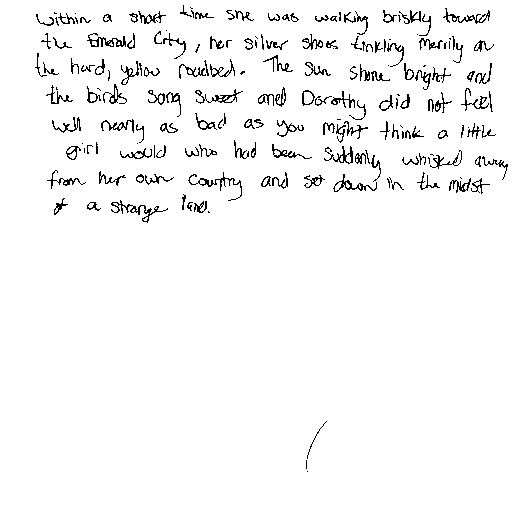 within a short time she was walking briskly toward
the Emerald City, her silver shoes tinkling merrily on
the hard, yellow roadbed. The sun shone bright and
the birds song sweet and Dorothy did not feel
well nearly as bad as you might think a little
girl would who had been suddenly whisked away
from her own country and set down in the midst
of a strange land.